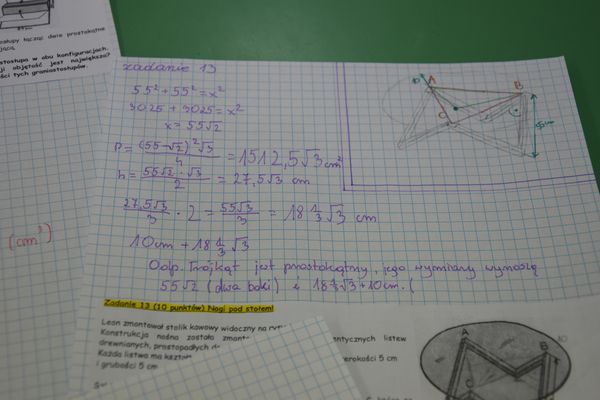 łupy łącząc dwie prostokątne
stosłupa w obu konfiguracjach.
objętość jest największa?
ości tych graniastosłupów
(cm³)
zadanie 13
55² + 55² = x²
3025 + 3025 = x²
x = 55√2
P = (55√2)²√3 / 4 = 1512,5√3 cm²
h = 55√2 · √3 / 2 = 27,5√3 cm
27,5√3 / 3 · 2 = 55√3 / 3 = 18 1/3 √3 cm
10cm + 18 1/3 √3
Odp. Trójkąt jest prostokątny, jego wymiary wynoszą
55√2 (dwa boki) i 18 1/3 √3 + 10cm. (
10
A
B
C
55cm
Zadanie 13 (10 punktów) Nogi pod stołem!
Leon zmontował stolik kawowy widoczny na
Konstrukcja nośna została zmont
entycznych listew
drewnianych, prostopadłych do
Każda listwa ma kształt
erokości 5 cm
i grubości 5 cm
A
B
C
10